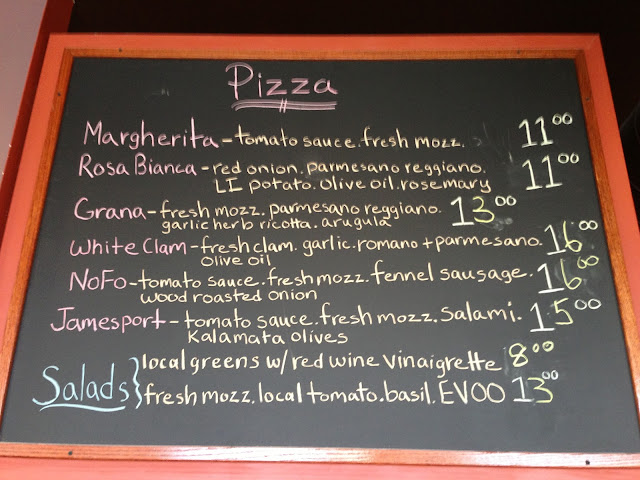 Pizza
Margherita - tomato sauce. fresh mozz. 11 00
Rosa Bianca - red onion. parmesano reggiano. 11 00
LI potato. olive oil. rosemary
Grana - fresh mozz. parmesano reggiano. 13 00
garlic herb ricotta. arugula
White Clam - fresh clam. garlic. romano + parmesano. 16 00
olive oil
NoFo - tomato sauce. fresh mozz. fennel sausage. 16 00
wood roasted onion
Jamesport - tomato sauce. fresh mozz. salami. 15 00
Kalamata olives
Salads } local greens w/ red wine vinaigrette 8 00
fresh mozz. local tomato. basil. EVOO 13 00